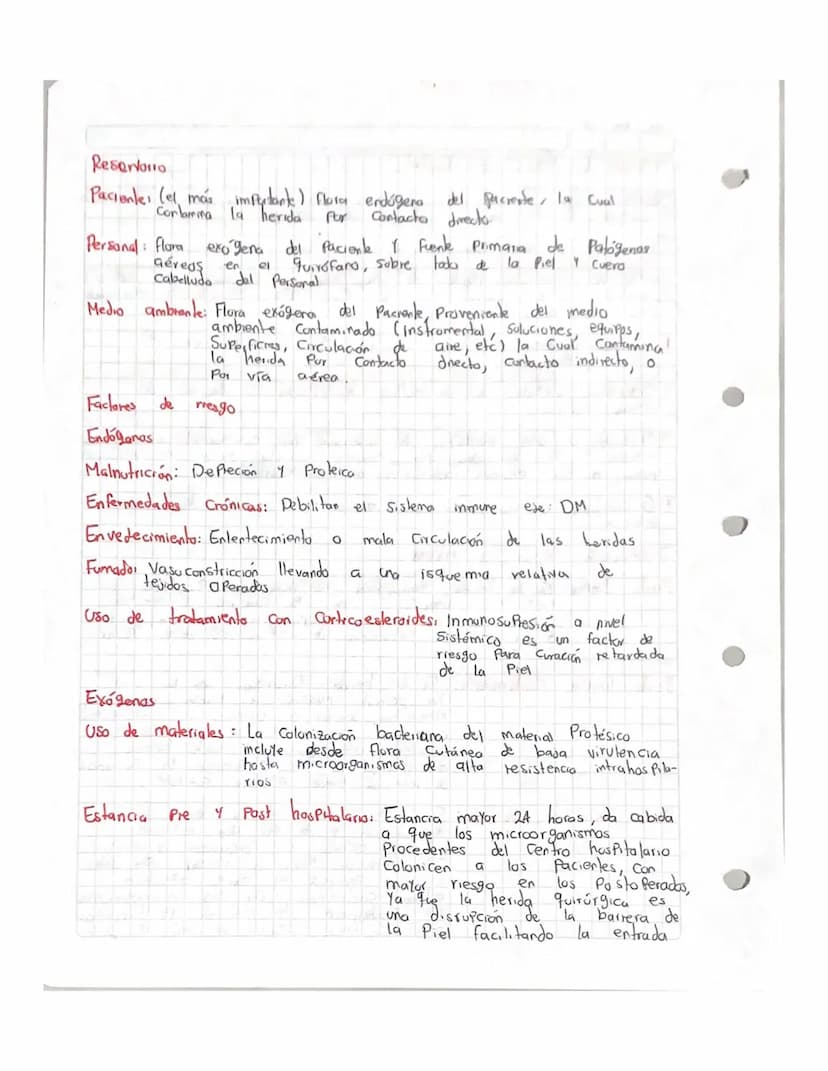 Reservorio
Paciente: (el más importante) flora endógena del paciente, la cual
contamina la herida por contacto directo.
Personal: flora exógena del paciente y fuente primaria de patógenos
aéreos en el quirófano, sobre todo de la piel y cuero
cabelludo del personal
Medio ambiente: Flora exógena del paciente, proveniente del medio
ambiente contaminado (instromental, soluciones, equipos,
superficies, circulación de aire, etc) la cual contamina
la herida por contacto directo, contacto indirecto, o
por vía aérea.
Factores de riesgo
Endógenos
Malnutrición: Depleción y proteica
Enfermedades Crónicas: Debilitan el sistema inmune eje: DM
Envejecimiento: Enlentecimiento o mala circulación de las heridas
Fumador Vasoconstricción llevando a una isquemia relativa de
tejidos operados
Uso de tratamiento con corticoesteroides: Inmunosupresión a nivel
sistémico es un factor de
riesgo para curación retardada
de la piel
Exógenas
Uso de materiales: La colonización bacteriana del material protésico
incluye desde flora cutánea de baja virulencia
hasta microorganismos de alta resistencia intrahospila-
rios
Estancia pre y post hospitalaria: Estancia mayor 24 horas, da cabida
a que los microorganismos
procedentes del centro hospitalario
colonicen a los pacientes, con
mayor riesgo en los postoperados,
ya que la herida quirúrgica es
una disrupción de la barrera de
la piel facilitando la entrada